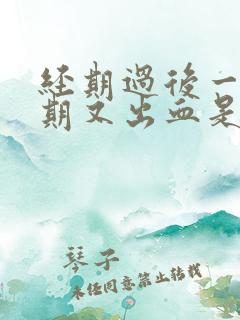 经期过後一
期又出血是
琴子
未经同意禁止转载